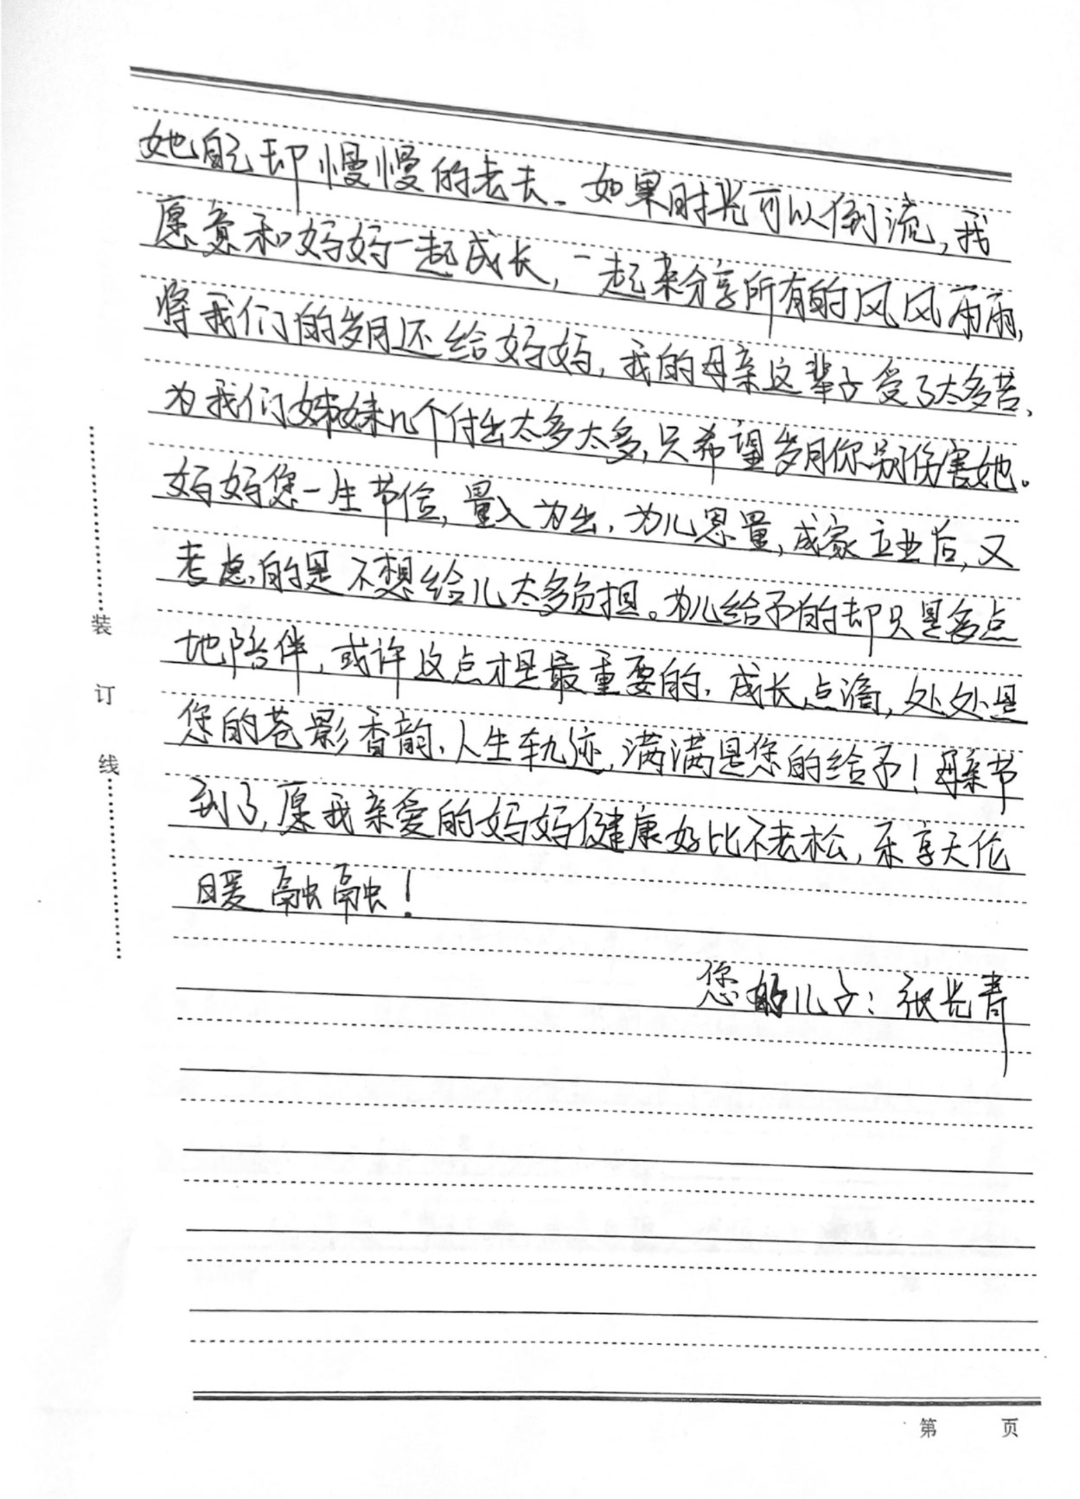 她自己却慢慢的老去、如果时光可以倒流,我
愿意和妈妈一起成长,一起来分享所有的风风雨雨,
将我们的岁月还给妈妈,我的母亲这辈子受了太多苦、
为我们姊妹几个付出太多太多,只希望岁月你别伤害她。
妈妈您一生节俭,量入为出,为儿思量,成家立业后,又
考虑的是不想给儿太多负担。为儿给予的却只是多点
地陪伴,或许这点才是最重要的,成长点滴,处处是
您的苍影香韵、人生轨迹,满满是您的给予!母亲节
到了,愿我亲爱的妈妈健康好比不老松,乐享天伦
暖融融!
您的儿子:张长青
装
订
线
第 页